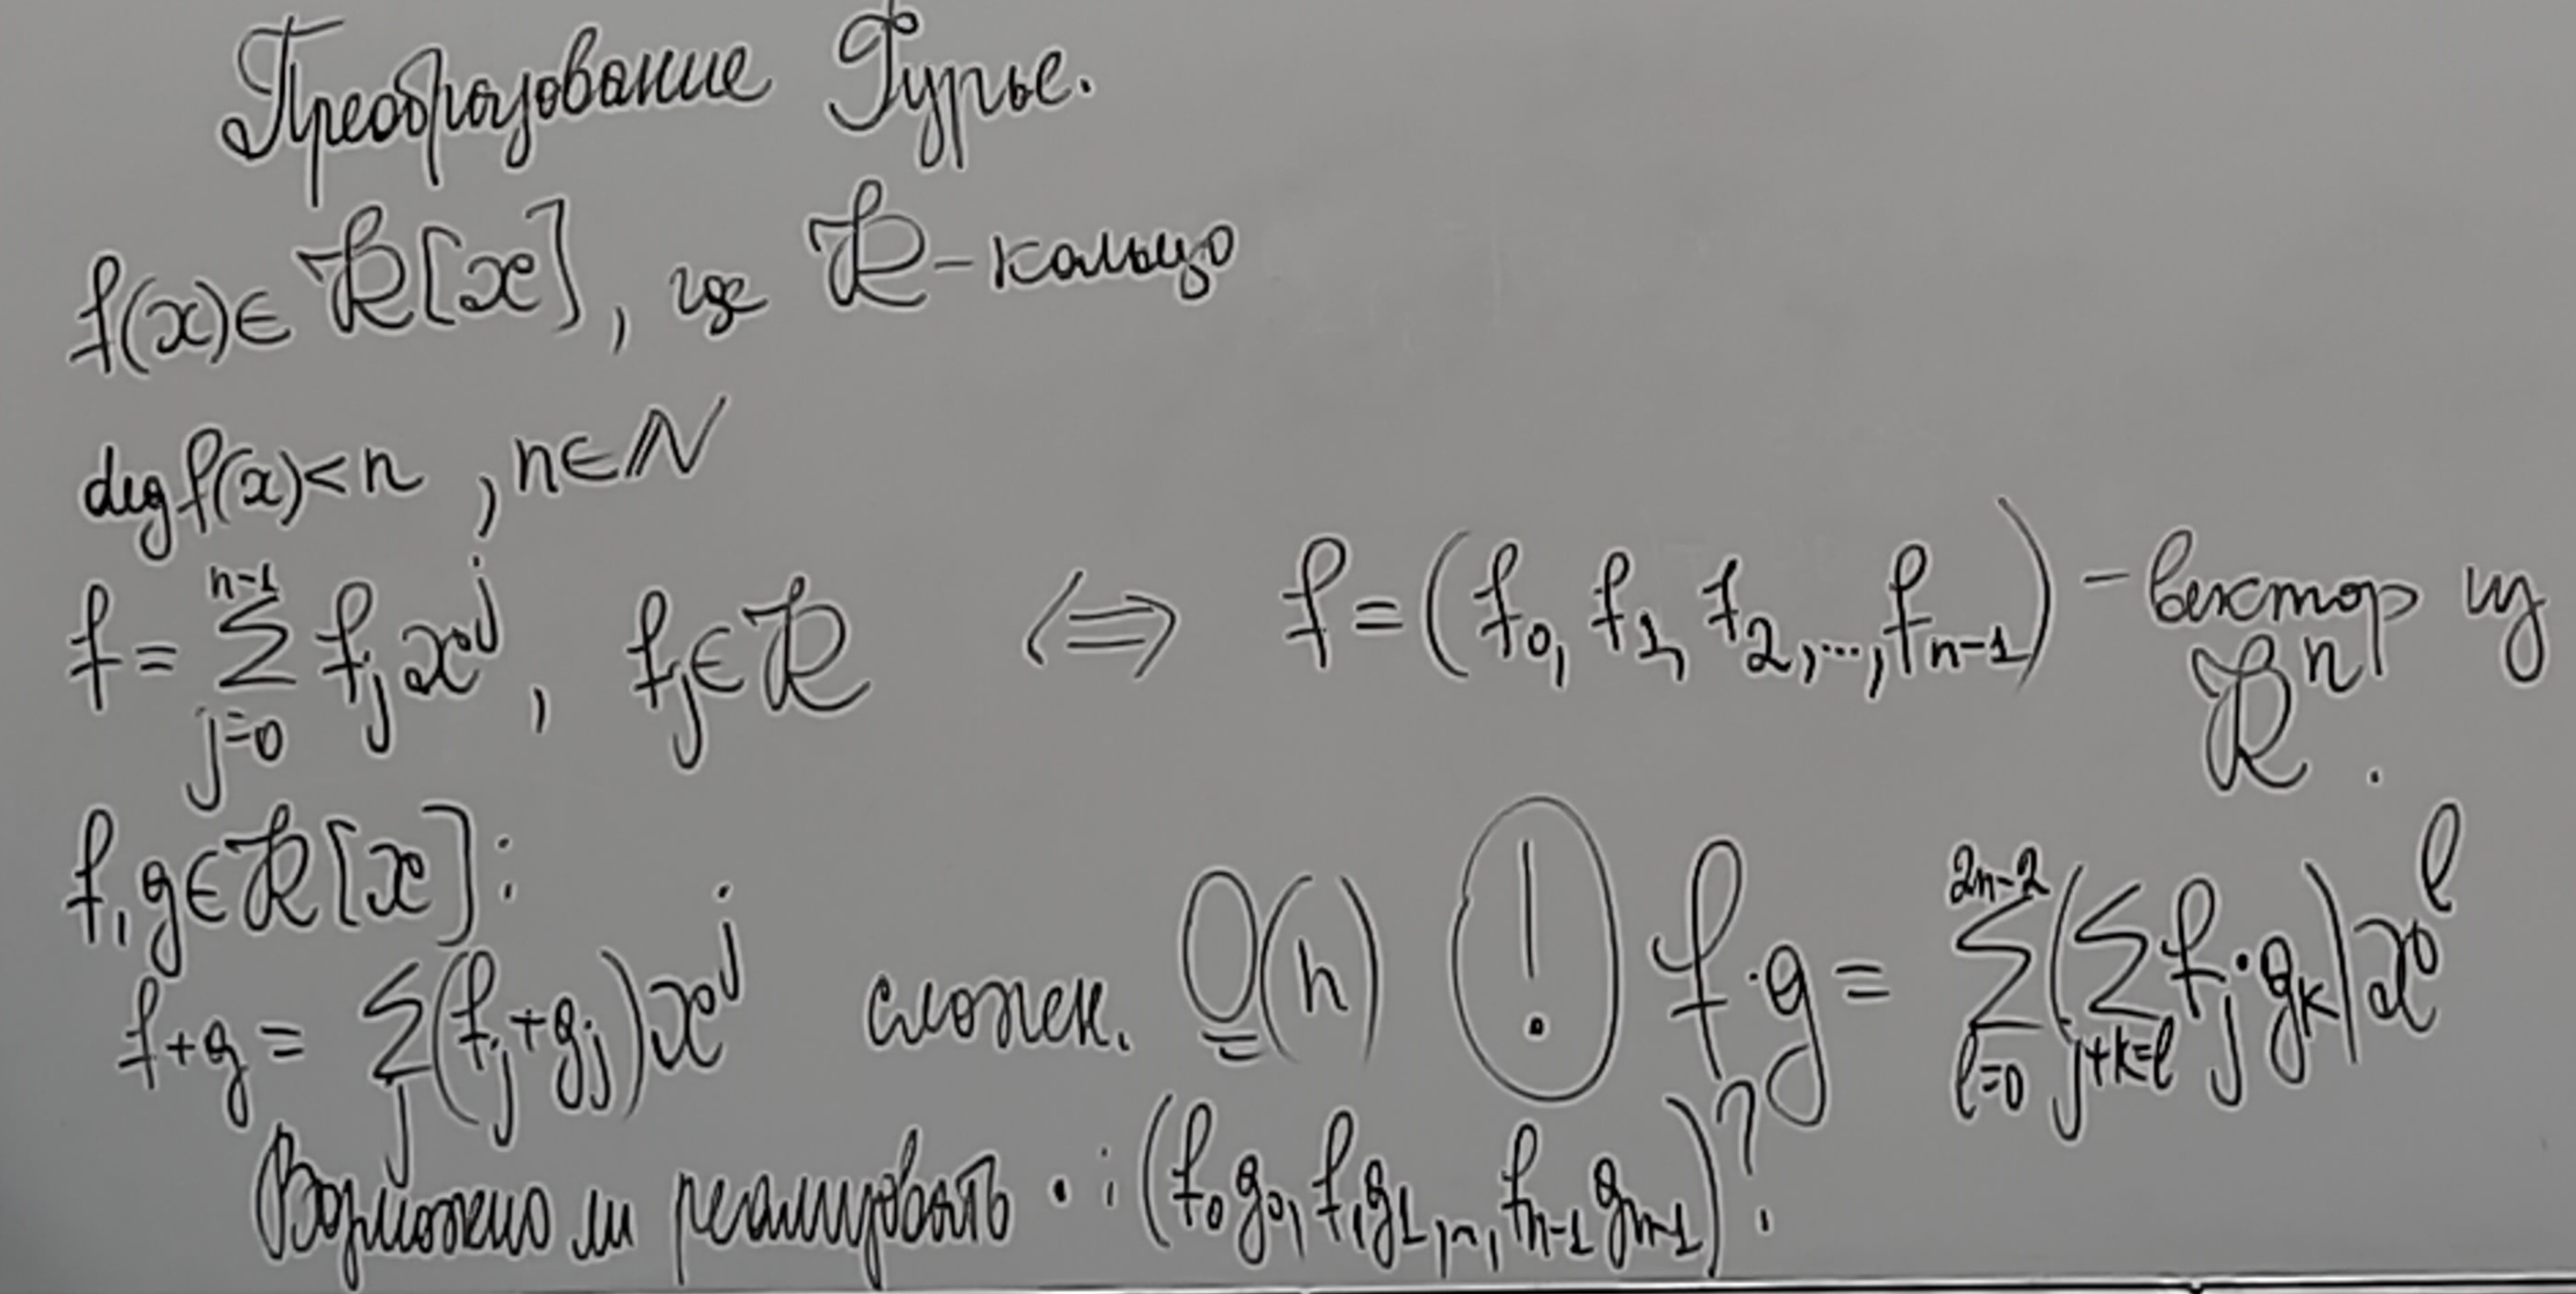 Преобразование Фурье.
f(x)∈ R[x], где R-кольцо
deg f(x)<n , n∈ℕ
f = ∑_{j=0}^{n-1} f_j x^j , f_j∈R ⟺ f=(f_0, f_1, f_2,..., f_{n-1}) - вектор из R^n.
f, g∈R[x]:
f+g = ∑_j (f_j+g_j)x^j сложн. O(n) ! f·g = ∑_{l=0}^{2n-2} (∑_{j+k=l} f_j·g_k) x^l
Возможно ли реализовать · : (f_0g_0, f_1g_1, ..., f_{n-1}g_{n-1})?